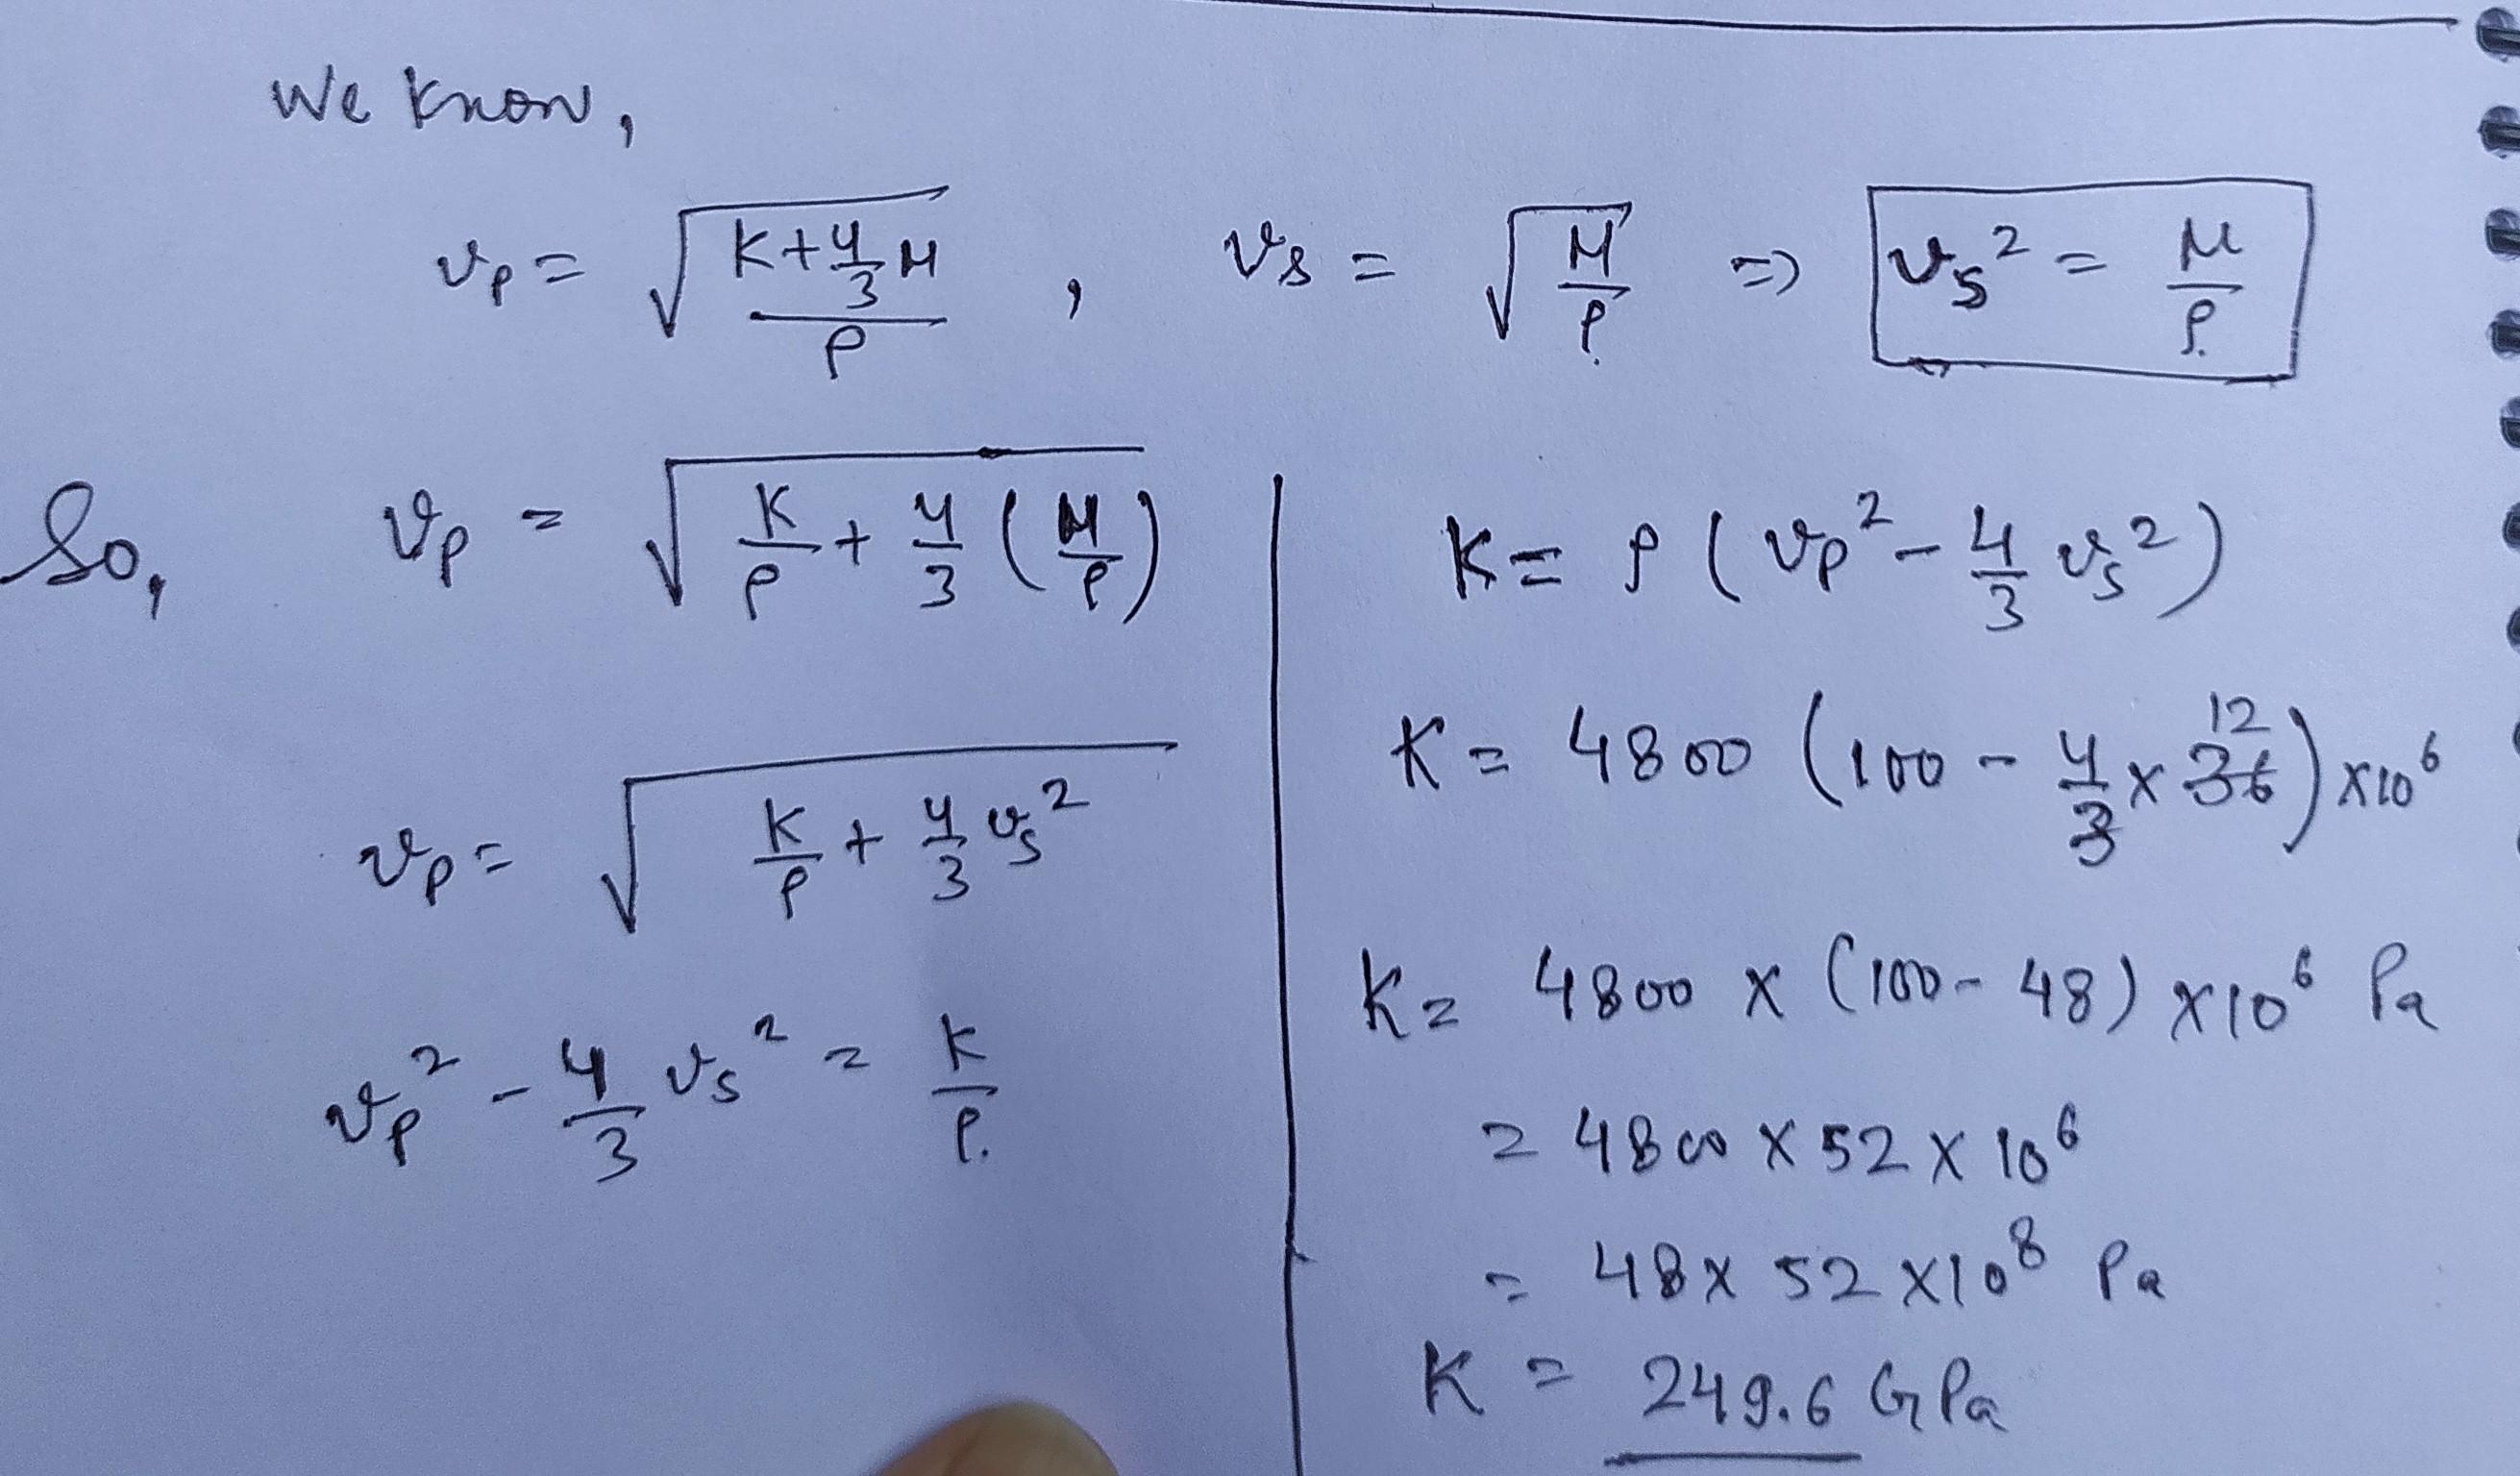 We know,
vₚ = √((K + 4/3 μ)/ρ) , vₛ = √(μ/ρ) => vₛ² = μ/ρ.
So, vₚ = √(K/ρ + 4/3 (μ/ρ))
vₚ = √(K/ρ + 4/3 vₛ²)
vₚ² - 4/3 vₛ² = K/ρ.
K = ρ (vₚ² - 4/3 vₛ²)
K = 4800 (100 - 4/3 × 36 12) × 10⁶
K = 4800 × (100 - 48) × 10⁶ Pa
= 4800 × 52 × 10⁶
= 48 × 52 × 10⁸ Pa
K = 249.6 GPa